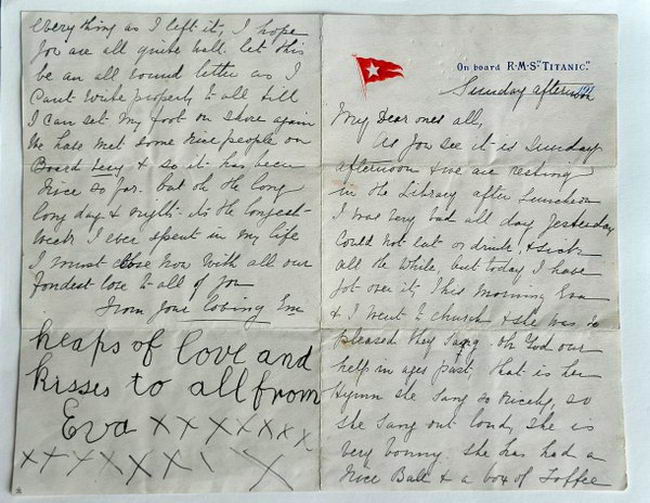 On board R·M·S "TITANIC."
Sunday afternoon
My Dear ones all,
As you see it is Sunday
afternoon & we are resting
in the Library after Luncheon
I was very bad all day yesterday
Could not eat or drink, & sick
all the while, but today I have
got over it, This morning Eva
& I went to church & she was so
pleased they sang. Oh God our
help in ages past that is her
Hymn she sang so nicely, so
she sang out loud, she is
very bonny. she has had a
nice Ball & a box of Toffee
every thing as I left it, I hope
You are all quite well. let this
be an all round letter as I
Cant write properly to all till
I can set my foot on shore again
We have met some nice people on
Board Lucy & so it has been
nice so far. but oh the long
long day & nights. its the longest
week I ever spent in my life
I must close now with all our
fondest love to all of you
From your loving Em
heaps of love and
kisses to all from
Eva x x x x x x x
x x x x x x x x x